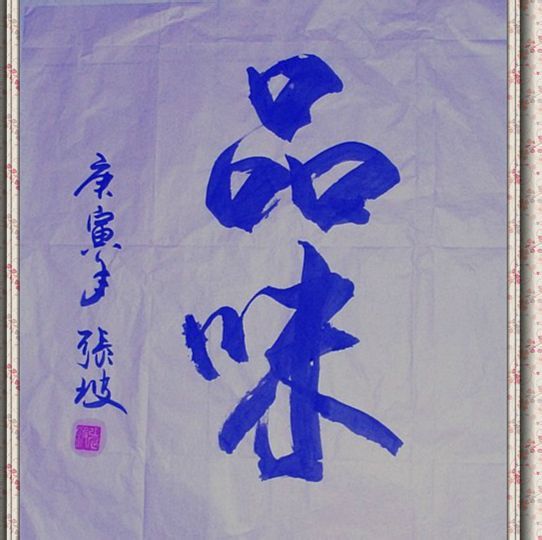 品味
庚寅年 張坡